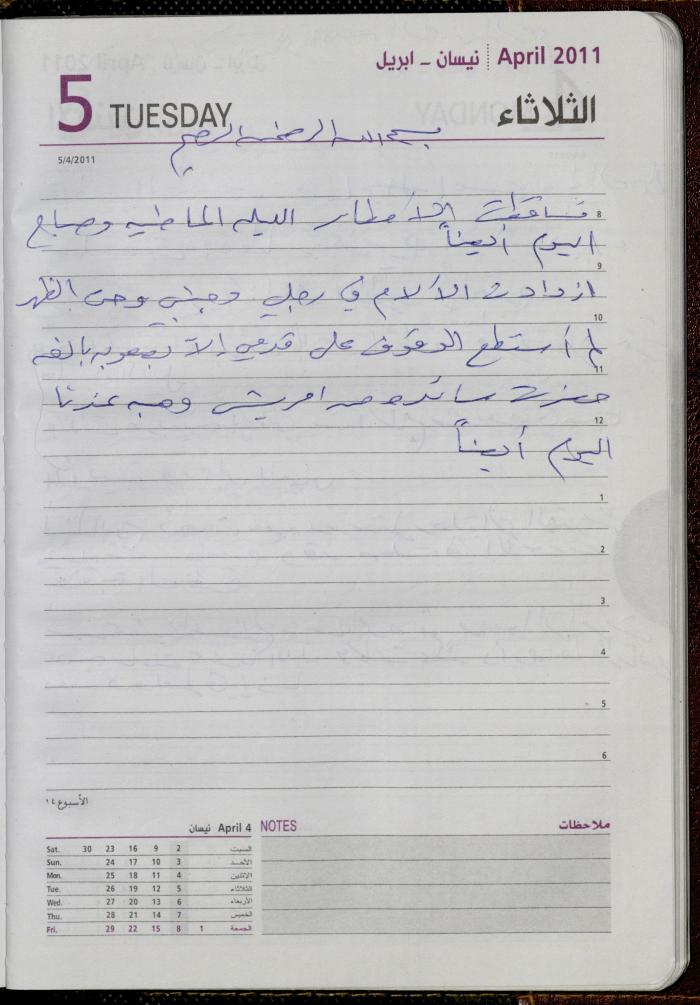 April 2011 نيسان - ابريل
5 TUESDAY الثلاثاء
بسم الله الرحمن الرحيم
5/4/2011
تساقطت الأمطار الليله الماضيه وصباح 8
اليوم أيضاً
9
ازدادت الآلام في رجلي وجنبي وحتى الظهر
10
لم أستطع الوقوف على قدمي إلا بصعوبه بالغه
11
حضرت سائده من امريش وهبه عندنا
12
اليوم أيضاً
1
2
3
4
5
6
الأسبوع ١٤
April 4 نيسان
Sat. 30 23 16 9 2 السبت
Sun. 24 17 10 3 الأحد
Mon. 25 18 11 4 الإثنين
Tue. 26 19 12 5 الثلاثاء
Wed. 27 20 13 6 الأربعاء
Thu. 28 21 14 7 الخميس
Fri. 29 22 15 8 1 الجمعة
NOTES ملاحظات